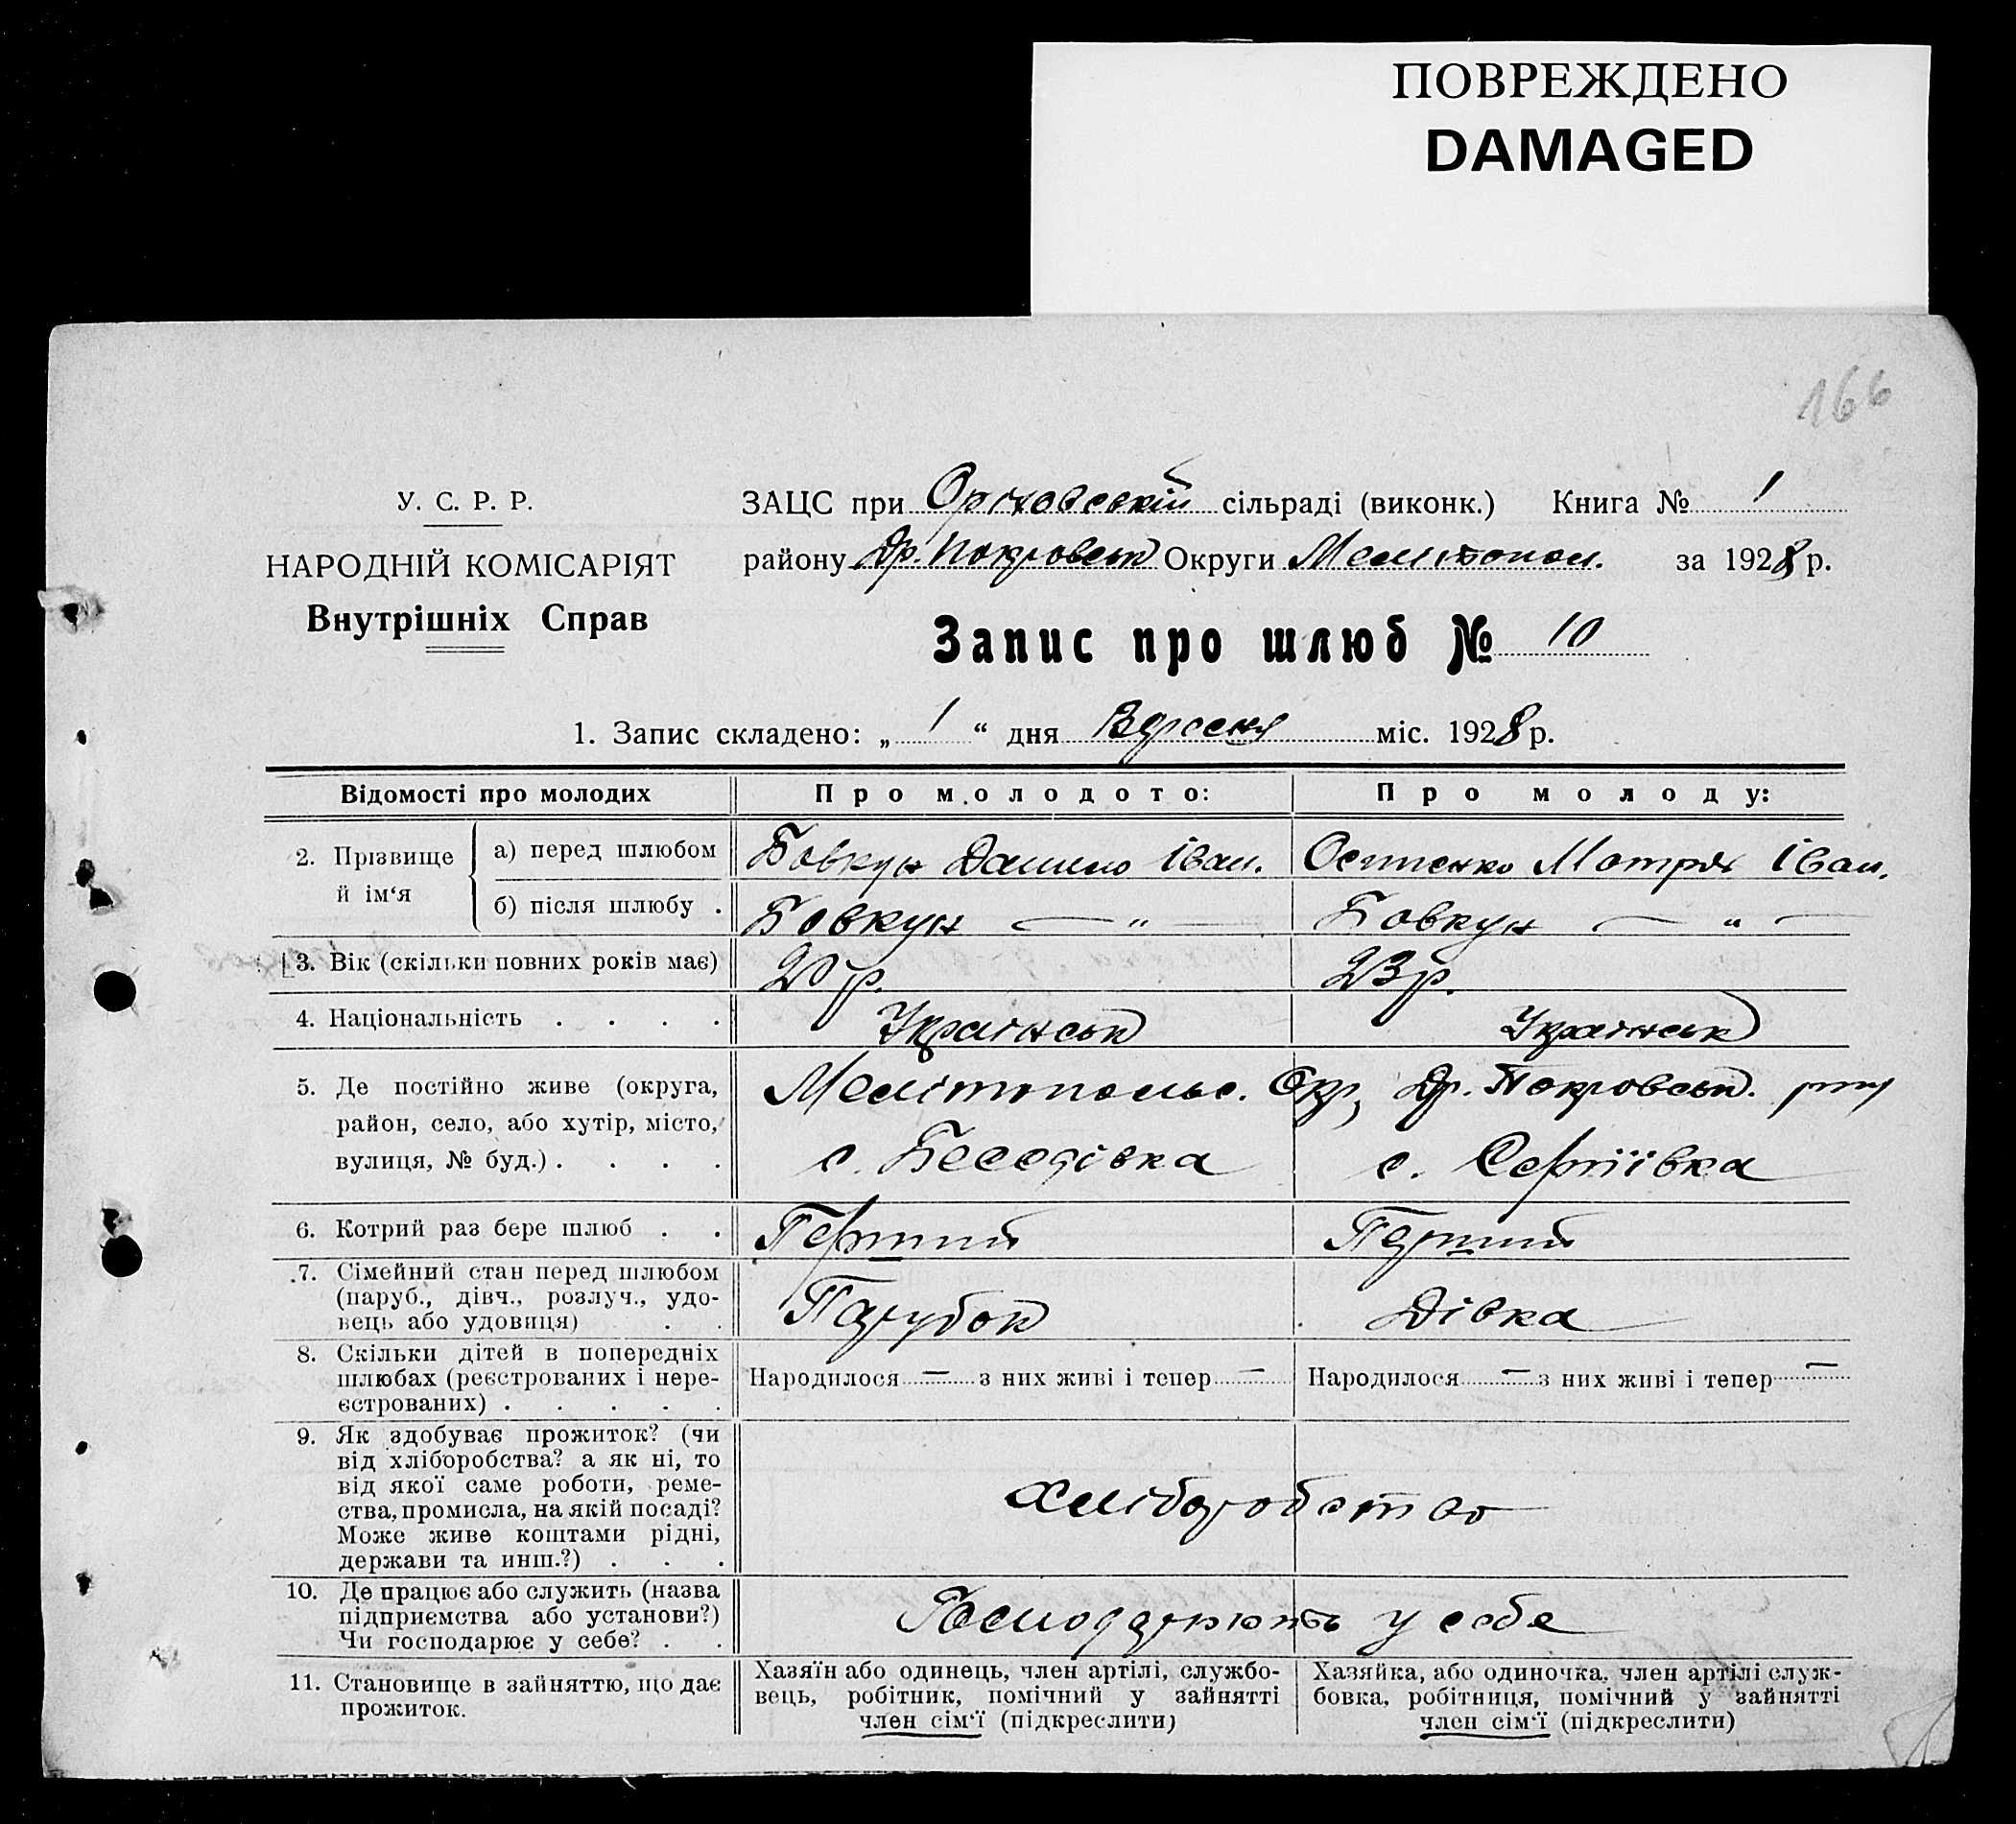 ПОВРЕЖДЕНО
DAMAGED
166
У. С. Р. Р.
НАРОДНІЙ КОМІСАРІЯТ
Внутрішніх Справ
ЗАЦС при Оріховській сільраді (виконк.) Книга № 1
району Др. Покровськ Округи Мелітопол. за 1928 р.
Запис про шлюб № 10
1. Запис складено: „ 1 “ дня Вересня міс. 1928 р.
Відомості про молодих Про молодого: Про молоду:
2. Прізвище й ім‘я
а) перед шлюбом Бовкун Данило Іван. Остенко Мотря Іван.
б) після шлюбу . Бовкун — „ — Бовкун — „ —
3. Вік (скільки повних років має) 20 р. 23 р.
4. Національність . . . . Українськ Українськ
5. Де постійно живе (округа, Мелітопольс. Окр, Др. Покровськ. р-ну
район, село, або хутір, місто,
вулиця, № буд.) . . . . с. Беседівка с. Сергіївка
6. Котрий раз бере шлюб . . Перший Перший
7. Сімейний стан перед шлюбом
(паруб., дівч., розлуч., удо-
вець або удовиця) . . Парубок Дівка
8. Скільки дітей в попередніх
шлюбах (реєстрованих і нере- Народилося — з них живі і тепер — Народилося — з них живі і тепер —
єстрованих) . . . . .
9. Як здобуває прожиток? (чи
від хліборобства? а як ні, то
від якої саме роботи, реме-
ства, промисла, на якій посаді? Хліборобство
Може живе коштами рідні,
держави та инш.?) . . .
10. Де працює або служить (назва
підприємства або установи?) Господарюють у себе
Чи господарює у себе? . .
11. Становище в зайняттю, що дає
прожиток.
Хазяїн або одинець, член артілі, службо-
вець, робітник, помічний у зайнятті
член сім‘ї (підкреслити)
Хазяйка, або одиночка, член артілі служ-
бовка, робітниця, помічний у зайнятті
член сім‘ї (підкреслити)